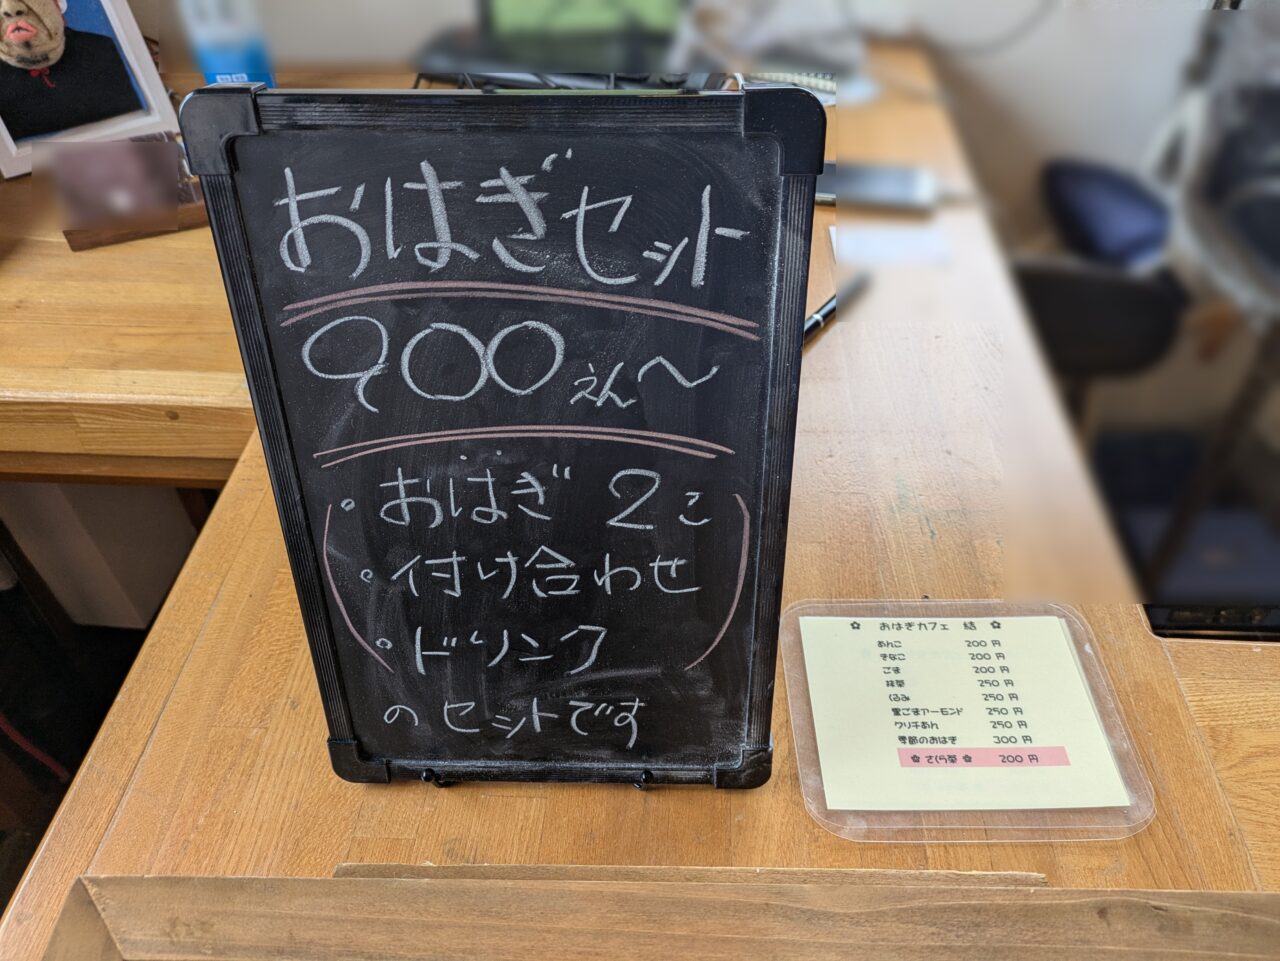 おはぎセット
900えん〜
・おはぎ 2こ
・付け合わせ
・ドリンク
のセットです
✿ おはぎカフェ 結 ✿
あんこ 200 円
きなこ 200 円
ごま 200 円
抹茶 250 円
くるみ 250 円
黒ごまアーモンド 250 円
クリチあん 250 円
季節のおはぎ 300 円
✿ さくら茶 ✿ 200 円